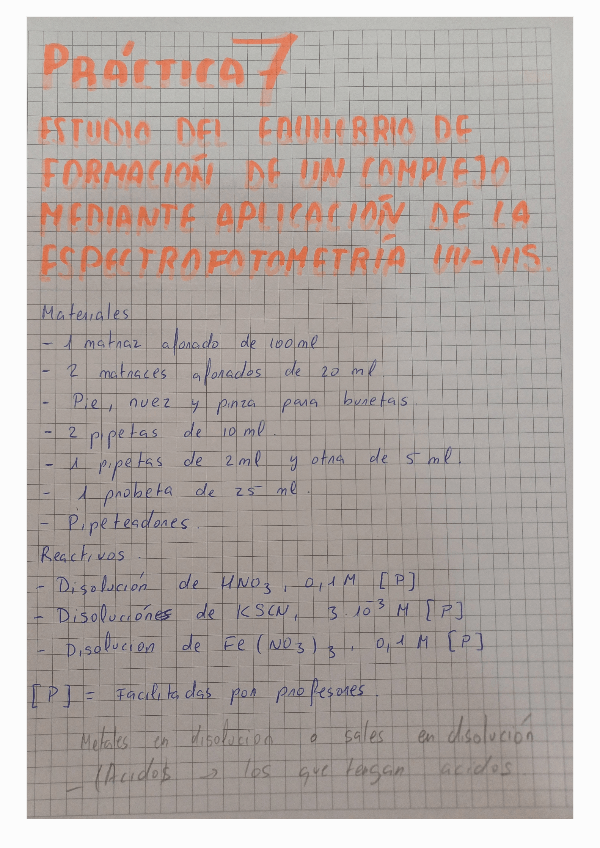 PRÁCTICA 7
ESTUDIO DEL EQUILIBRIO DE
FORMACIÓN DE UN COMPLEJO
MEDIANTE APLICACIÓN DE LA
ESPECTROFOTOMETRÍA UV-VIS.
Materiales
- 1 matraz aforado de 100 ml
- 2 matraces aforados de 20 ml.
- Pie, nuez y pinza para buretas.
- 2 pipetas de 10 ml.
- 1 pipetas de 2 ml y otra de 5 ml.
- 1 probeta de 25 ml.
- Pipeteadores.
Reactivos.
- Disolución de HNO₃, 0,1 M [P]
- Disoluciónes de KSCN, 3·10³ M [P]
- Disolución de Fe(NO₃)₃, 0,1 M [P]
[P] = Facilitadas por profesores.
Metales en disolución o sales en disolución
- (Ácidos → los que tengan acidos.